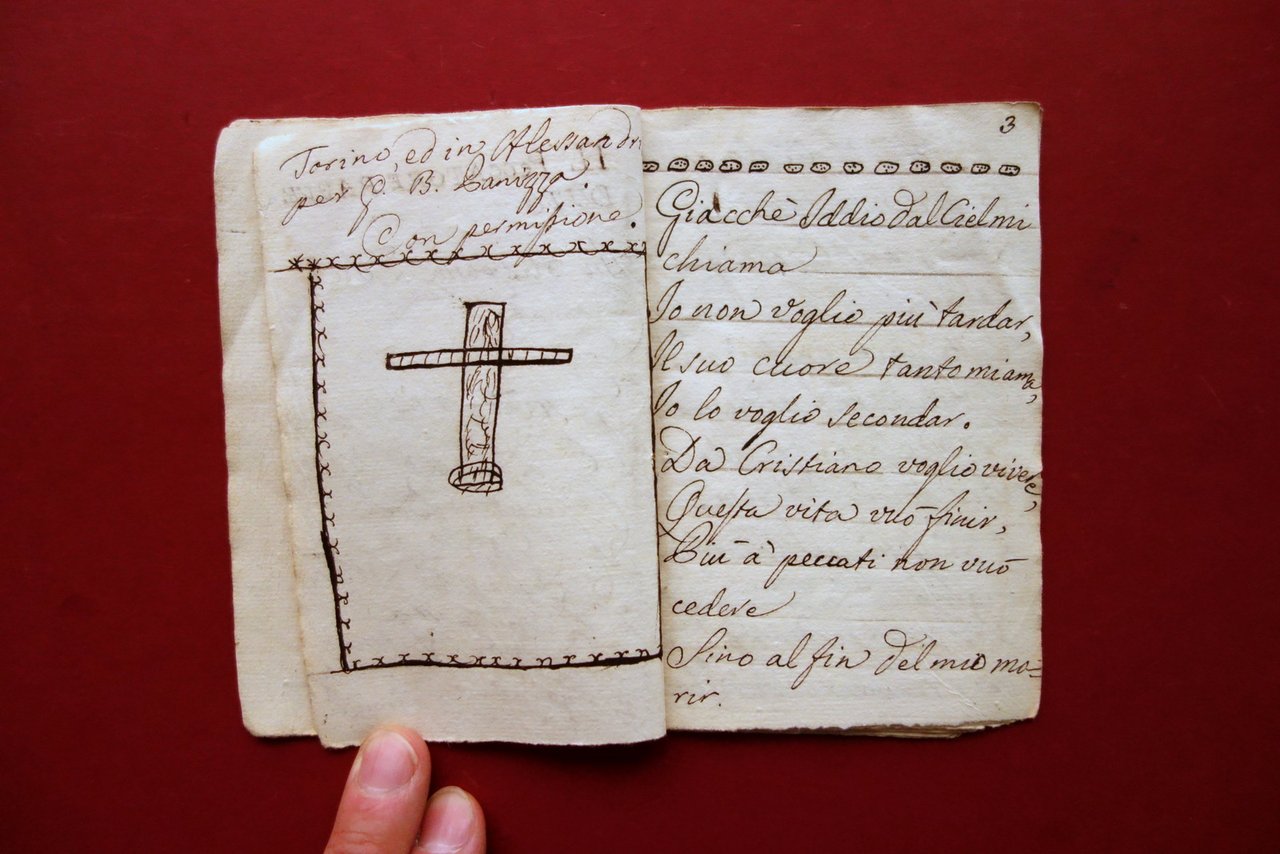 Torino, ed in Alessandr
per G. B. Panizza
Con permissione.
3
Giacchè Iddio dal Ciel mi
chiama
Io non voglio più tardar,
Il suo cuore tanto mi ama,
Io lo voglio secondar.
Da Cristiano voglio vivere,
Questa vita vuò finir,
Più à peccati non vuò
cedere
Sino al fin del mio mo=
rir.